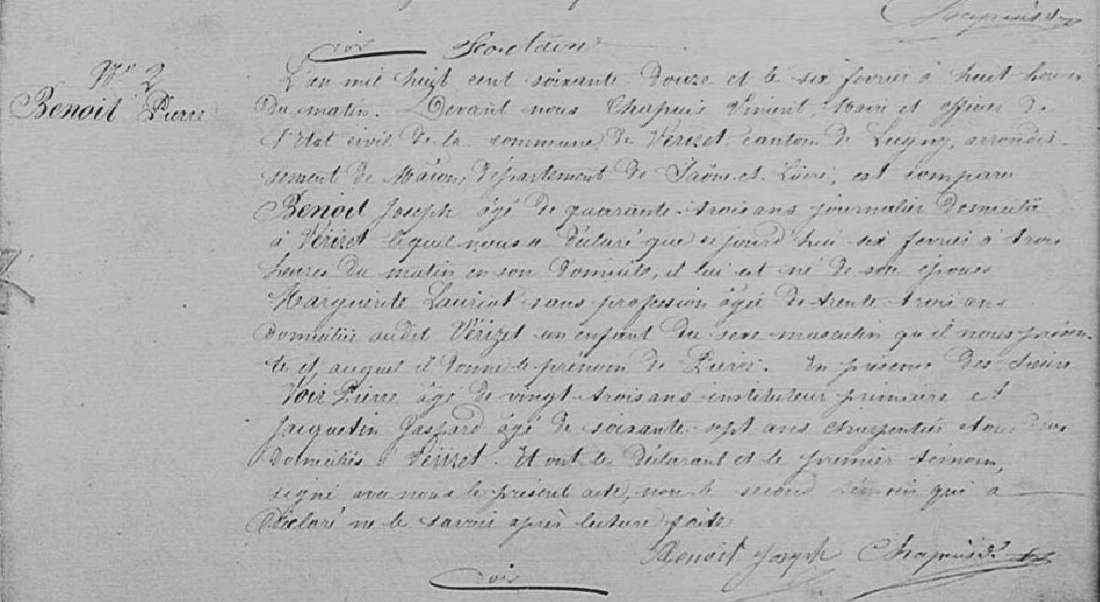 Chapuis
Voir
N° 2
Benoit Pierre
L'an mil huit cent soixante douze et le six fevrier à huit heures
du matin. Devant nous Chapuis Vincent, Maire et officier de
l'Etat civil de la commune de Vérizet, canton de Lugny, arrondis-
sement de Mâcon, département de Saône et Loire, est comparu
Benoit Joseph âgé de quarante-trois ans journalier domicilié
à Vérizet lequel nous a déclaré que ce jourd'hui six fevrier à trois
heures du matin en son domicile, il lui est né de son épouse
Marguerite Lauriot sans profession âgée de trente-trois ans
domiciliée audit Vérizet un enfant du sexe masculin qu'il nous présen-
te et auquel il donne le prénom de Pierre. En présence des sieurs
Voir Pierre âgé de vingt-trois ans instituteur primaire et
Jacquetin Gaspard âgé de soixante-sept ans charpentier tous deux
domiciliés à Vérizet. Et ont le déclarant et le premier témoin,
signé avec nous le présent acte, non le second témoin qui a
déclaré ne le savoir après lecture faite.
Benoit Joseph Chapuis
Voir